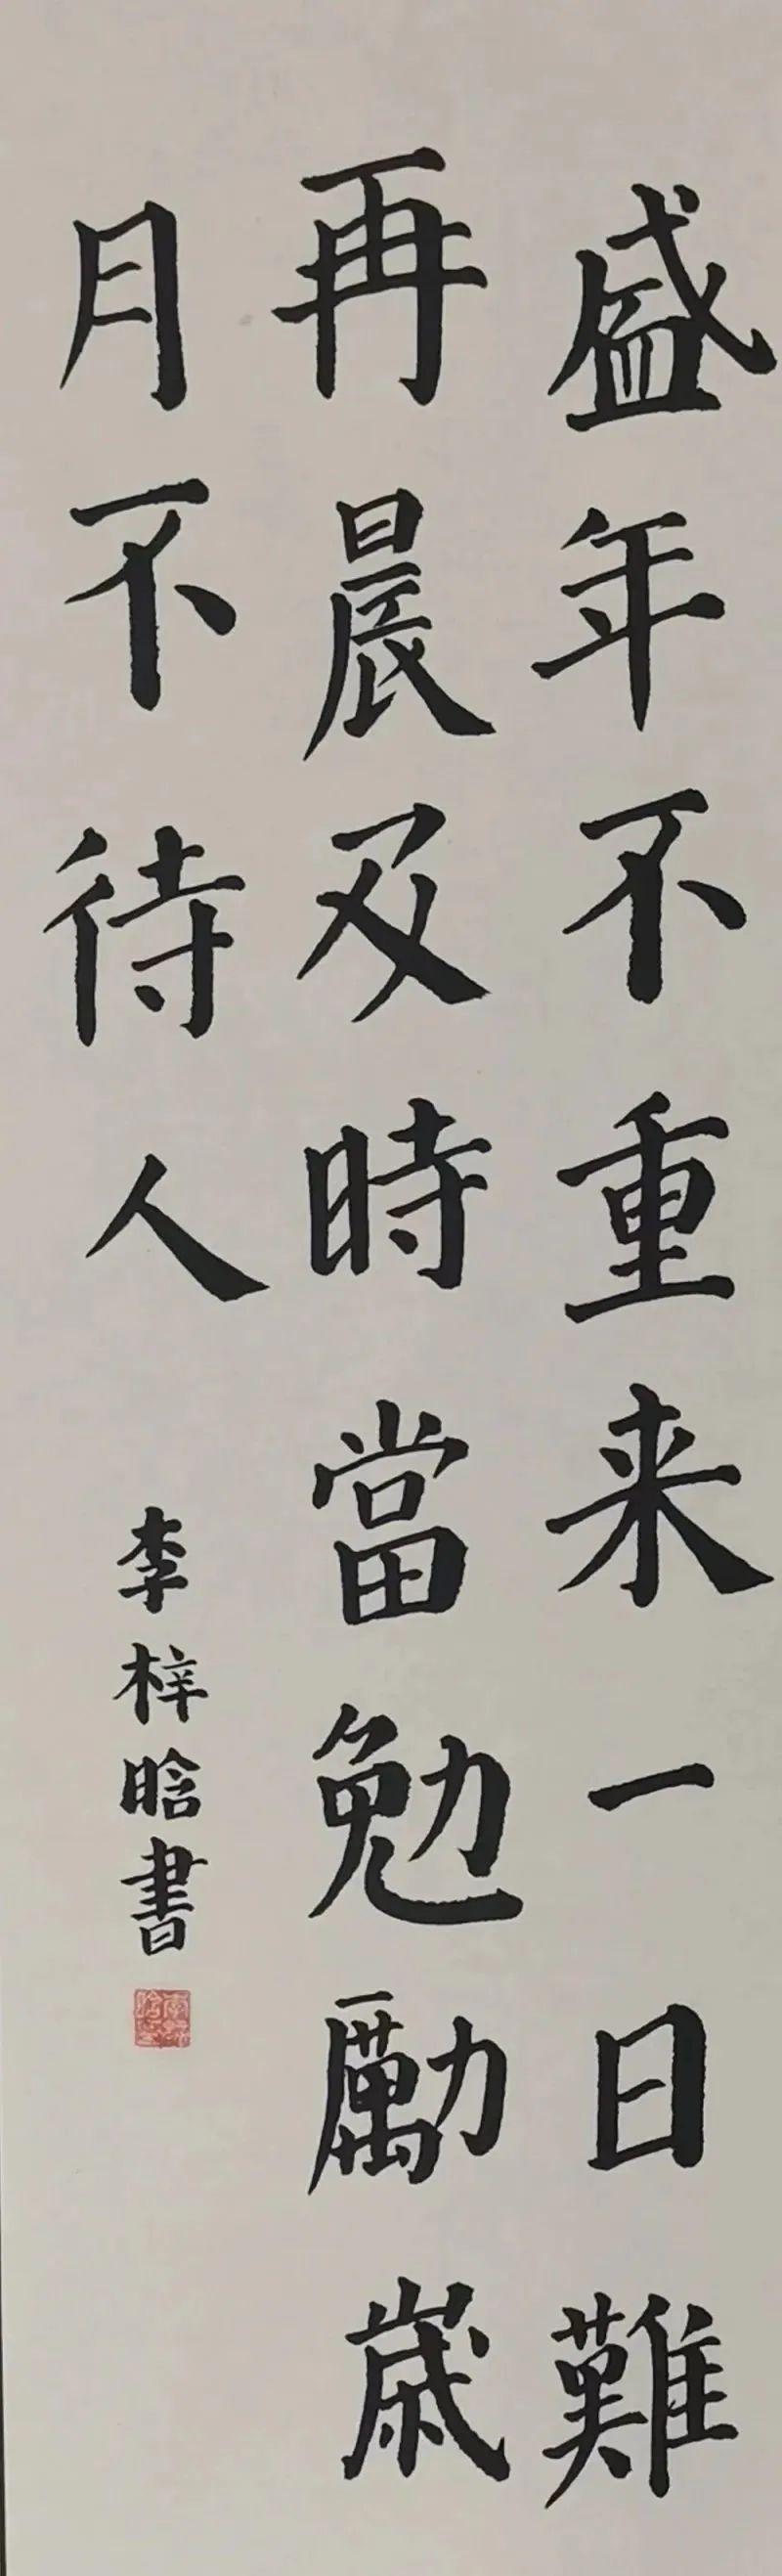 盛年不重来一日難
再晨及時當勉勵歳
月不待人
李梓晗書